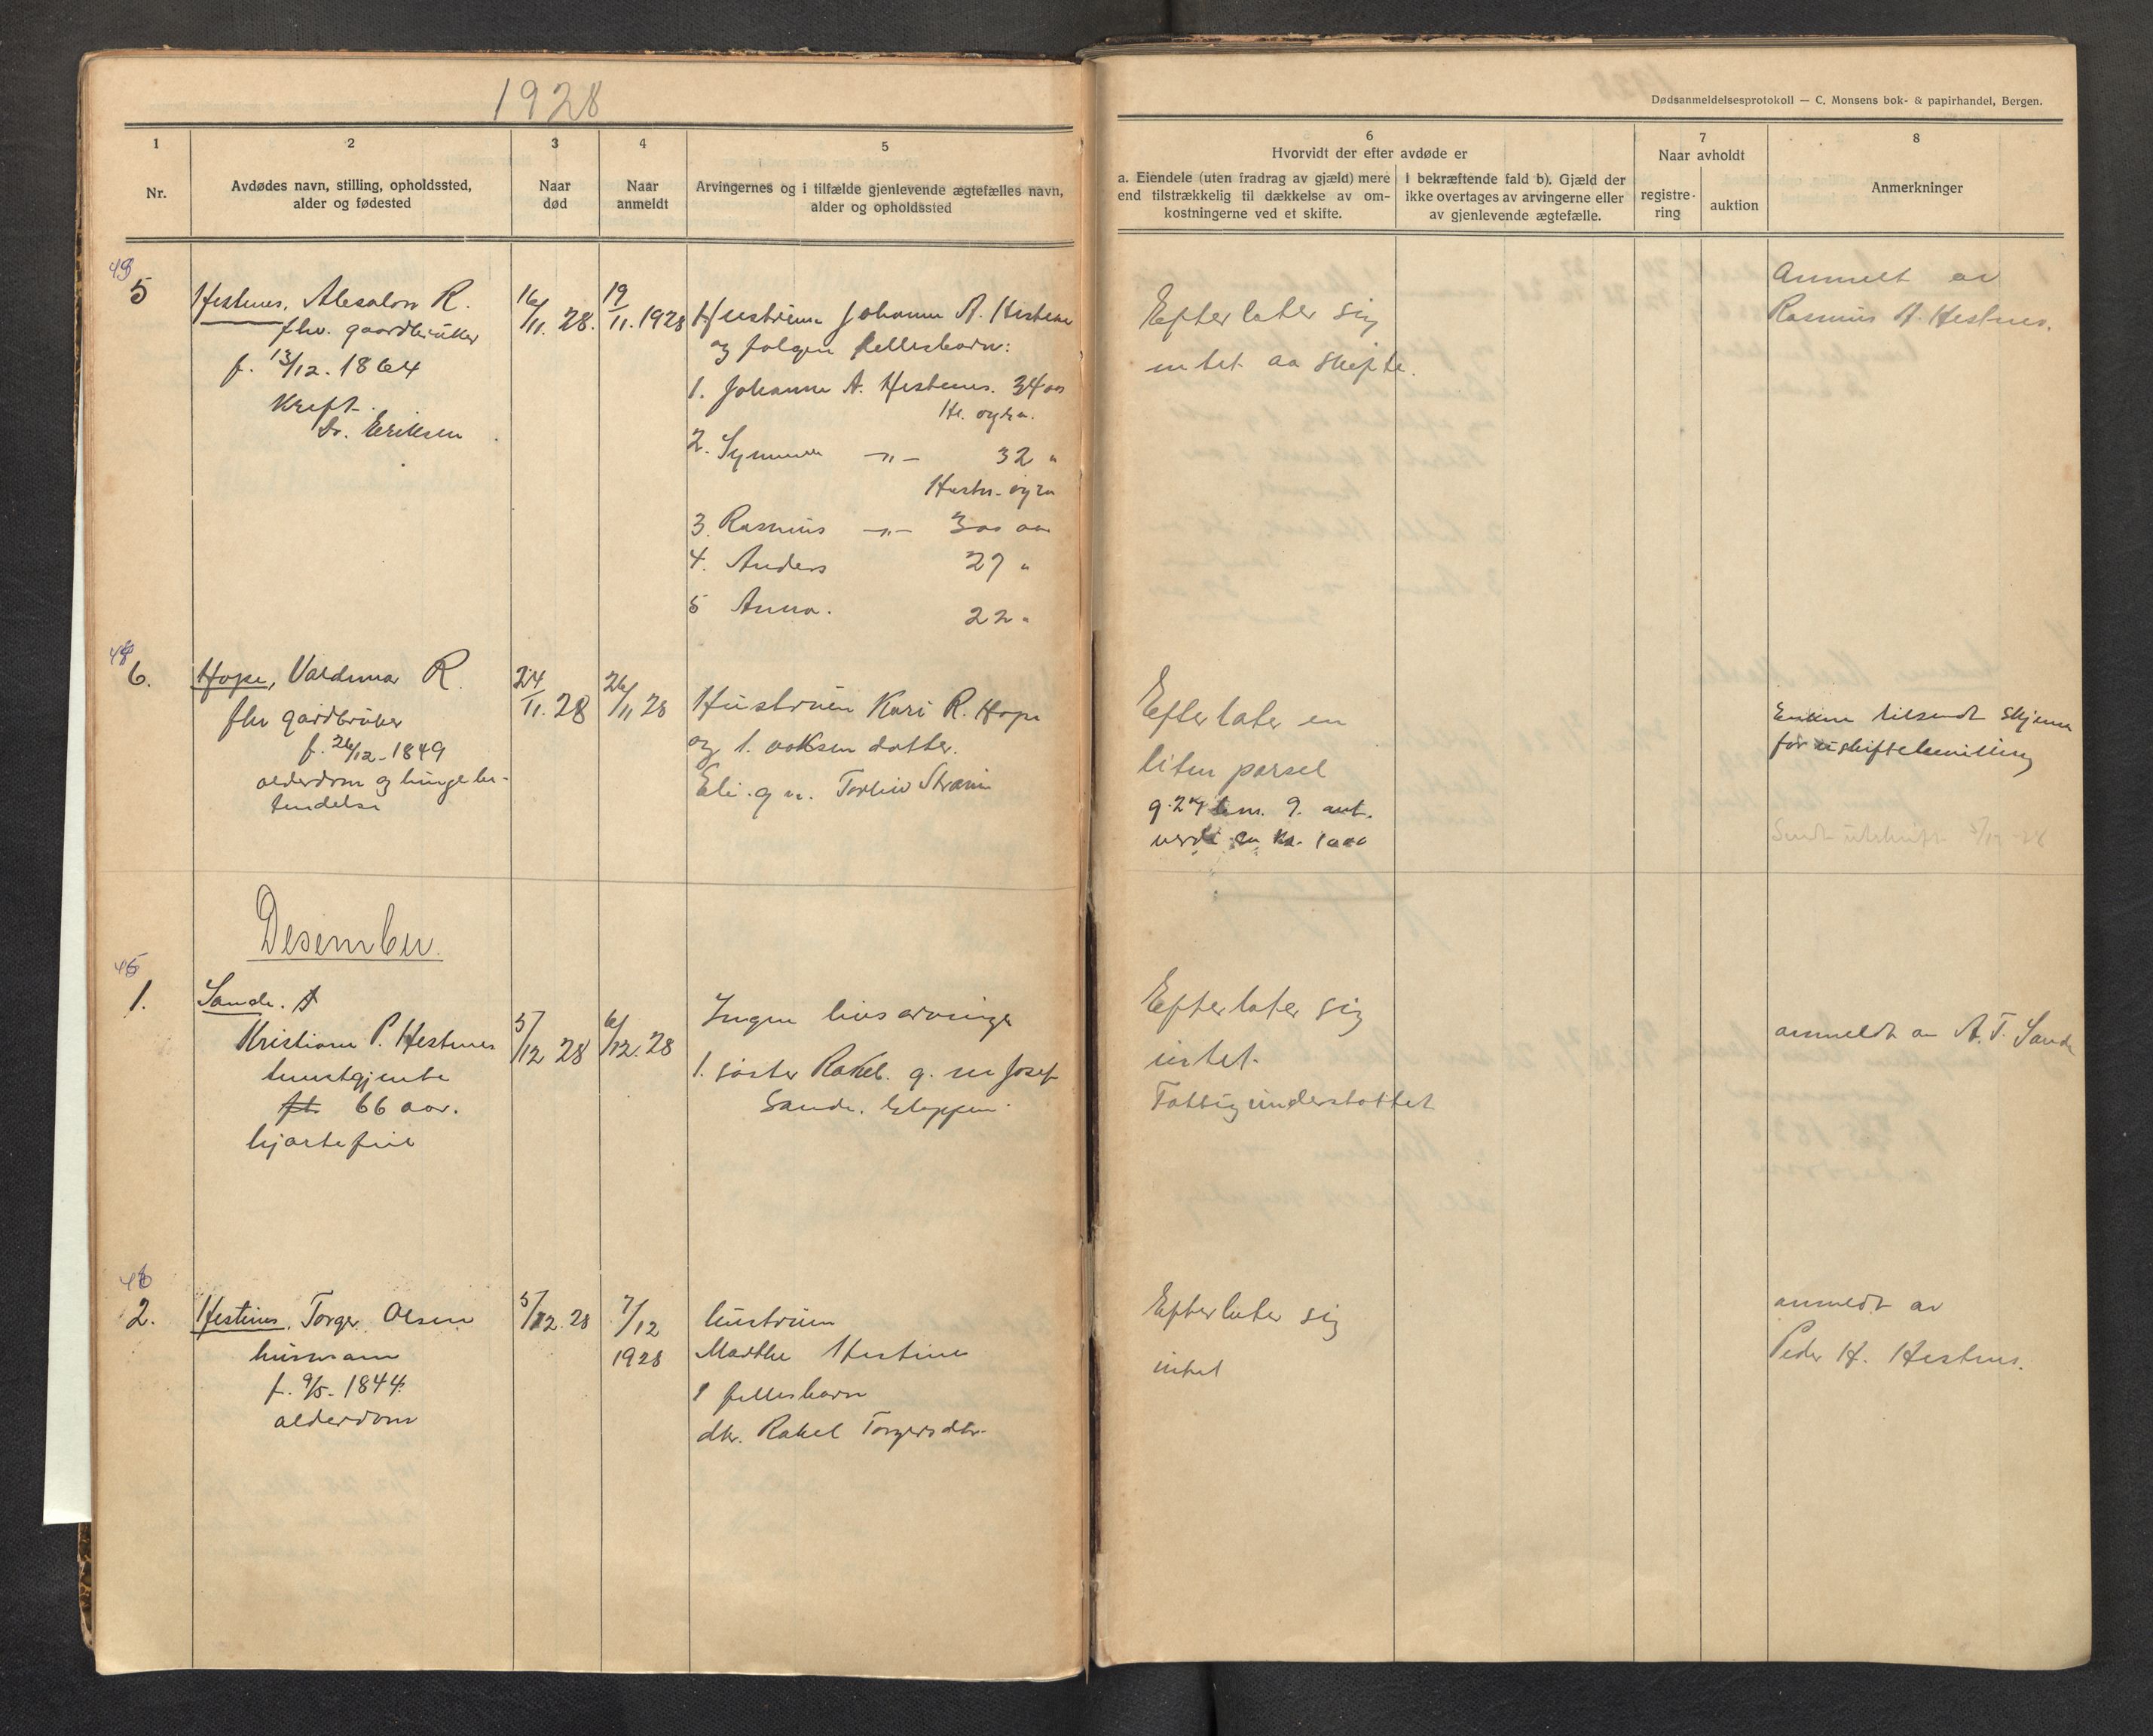 1928
Dødsanmeldelsesprotokoll — C. Monsens bok- & papirhandel, Bergen.
1
2
3
4
5
6
7
8
Nr.
Avdødes navn, stilling, opholdssted,
alder og fødested
Naar
død
Naar
anmeldt
Arvingernes og i tilfælde gjenlevende ægtefælles navn,
alder og opholdssted
Hvorvidt der efter avdøde er
a. Eiendele (uten fradrag av gjæld) mere
end tilstrækkelig til dækkelse av om-
kostningerne ved et skifte.
I bekræftende fald b). Gjæld der
ikke overtages av arvingerne eller
av gjenlevende ægtefælle.
Naar avholdt
registre-
ring
auktion
Anmerkninger
5
Hestnes, Absalon R.
fhv. gaardbruker
f. 13/12. 1864
Kreft.
Dr. Eriksen
16/11. 28.
19/11. 1928
Hustruen Johanne A. Hestenes
og følgen fellesbarn:
1. Johanne A. Hestenes. 34 aar
2. Synneve —"— 32 "
3. Rasmus —"— 30 aar
4. Anders 27 "
5 Anna. 22 "
Efterlater sig
intet aa skifte.
Anmelt av
Rasmus A. Hestnes.
6.
Hope, Valdemar R.
fhv gardbruker
f. 26/12-1849
alderdom og lungebe-
tendelse
24/11. 28
26/11 28
Hustruen Kari R. Hope
og 1. voksen datter.
Eli. g m. Torleiv
Efterlater en
liten parsel
g. 27 b.nr. 9. ant.
verdi ca kr. 1000
Enken tilsendt skjema
for uskiftebevilling
Sendt utskrift
Desember.
45
1.
Sande. A
Kristiane P. Hestnes
tenestgjente
66 aar.
hjartefeil
5/12 28
6/12. 28
Ingen livsarvinger
1. søster Rakel. g. m Josef
Sande. Gloppen.
Efterlater sig
intet.
Fattigunderstøttet
anmeldt av A. T. Sande
46
2.
Hestenes, Torger Olsen
husmann
f. 9/5. 1844.
alderdom
5/12. 28
7/12
1928
hustruen
Marthe Hestenes
1 fellesbarn
dtr. Rakel Torgersdtr.
Efterlater sig
intet
anmeldt av
Peder H. Hestnes.